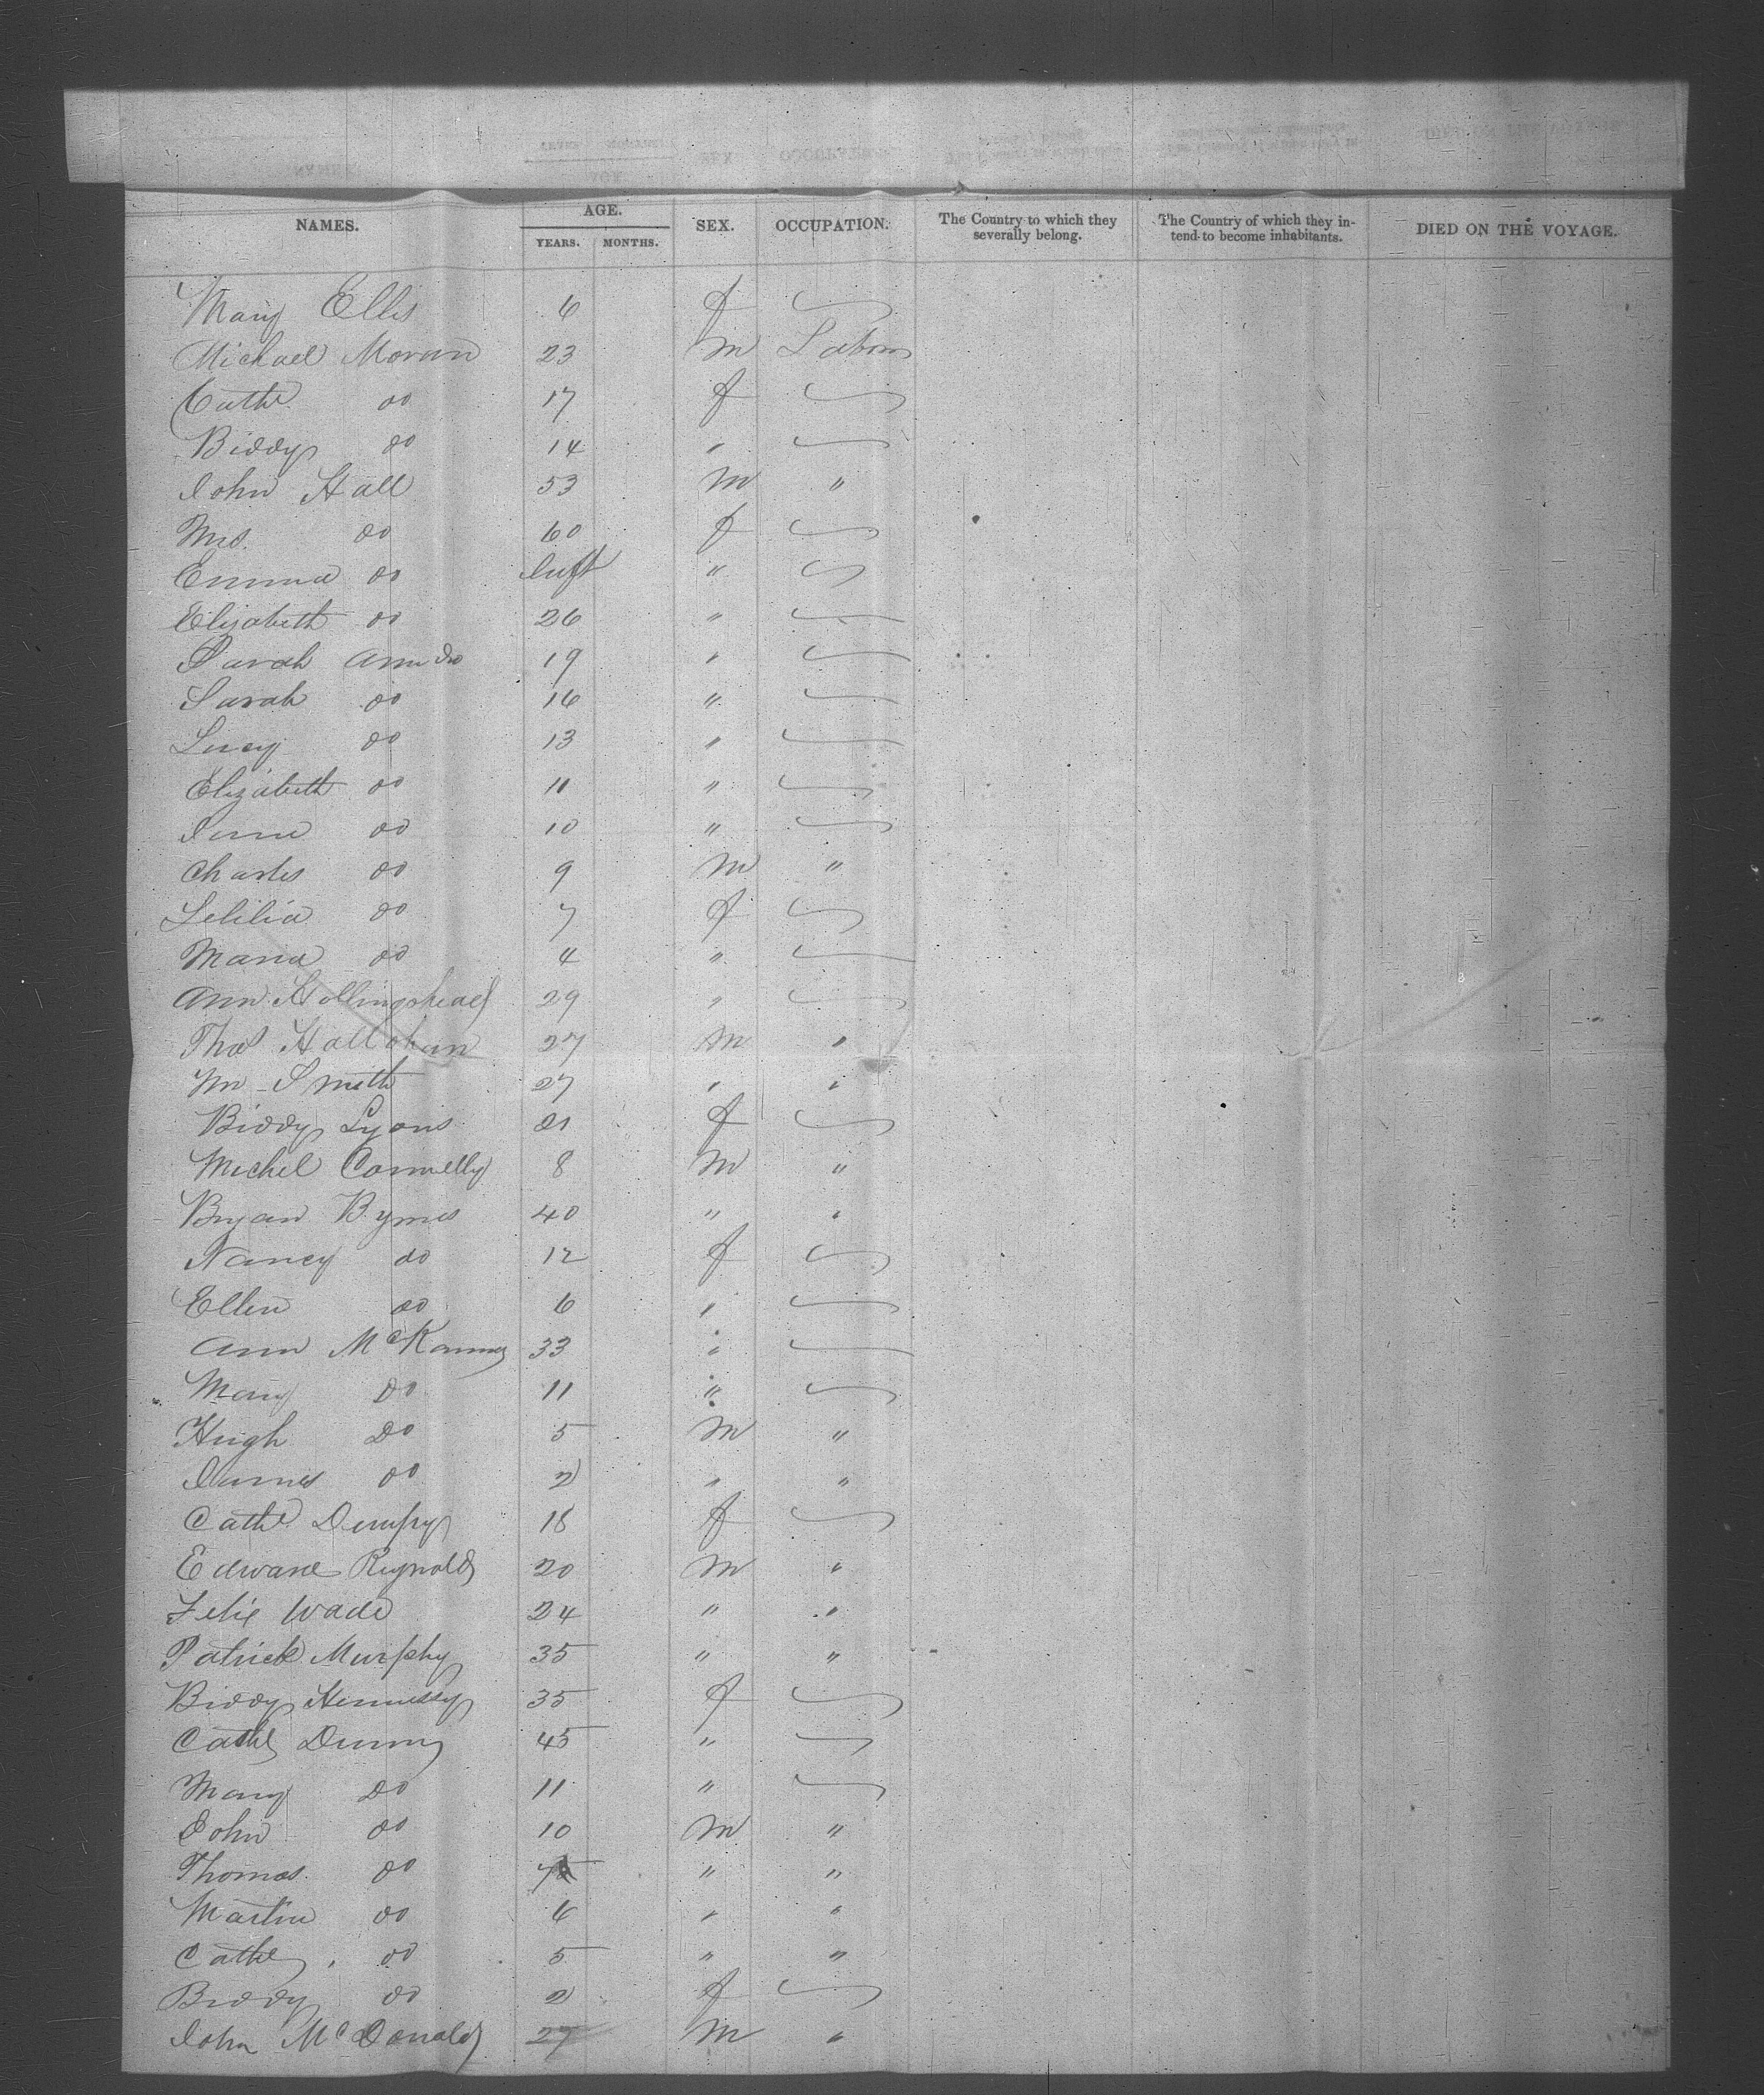 NAMES. AGE. YEARS. MONTHS. SEX. OCCUPATION. The Country to which they severally belong. The Country of which they in-tend to become inhabitants. DIED ON THE VOYAGE.
Mary Ellis 6 f
Michael Moran 23 m Labor
Cathe do 17 f
Biddy do 14 "
John Hall 53 m "
Mrs. do 60 f
Emma do Inft "
Elizabeth do 26 "
Sarah Ann do 19 "
Sarah do 16 "
Lucy do 13 "
Elizabeth do 11 "
Jane do 10 "
Charles do 9 m "
Lelilia do 7 f
Maria do 4 "
Ann Hollingshead 29 "
Thos Hallohan 27 m "
Wm Smith 27 " "
Biddy Lyons 21 f
Michel Connelly 8 m "
Bryan Byrnes 40 " "
Nancy do 12 f
Ellen do 6 "
Ann McKanny 33 "
Mary Do 11 "
Hugh Do 5 m "
James do 2 " "
Cathe Dempsy 18 f
Edward Reynolds 20 m "
Felix Wade 24 " "
Patrick Murphy 35 " "
Biddy Hennessy 35 f
Cathe Dunny 45 "
Mary Do 11 "
John do 10 m "
Thomas do " "
Martin do 6 " "
Cathe do 5 " "
Biddy do 2 f
John McDonald 27 m "